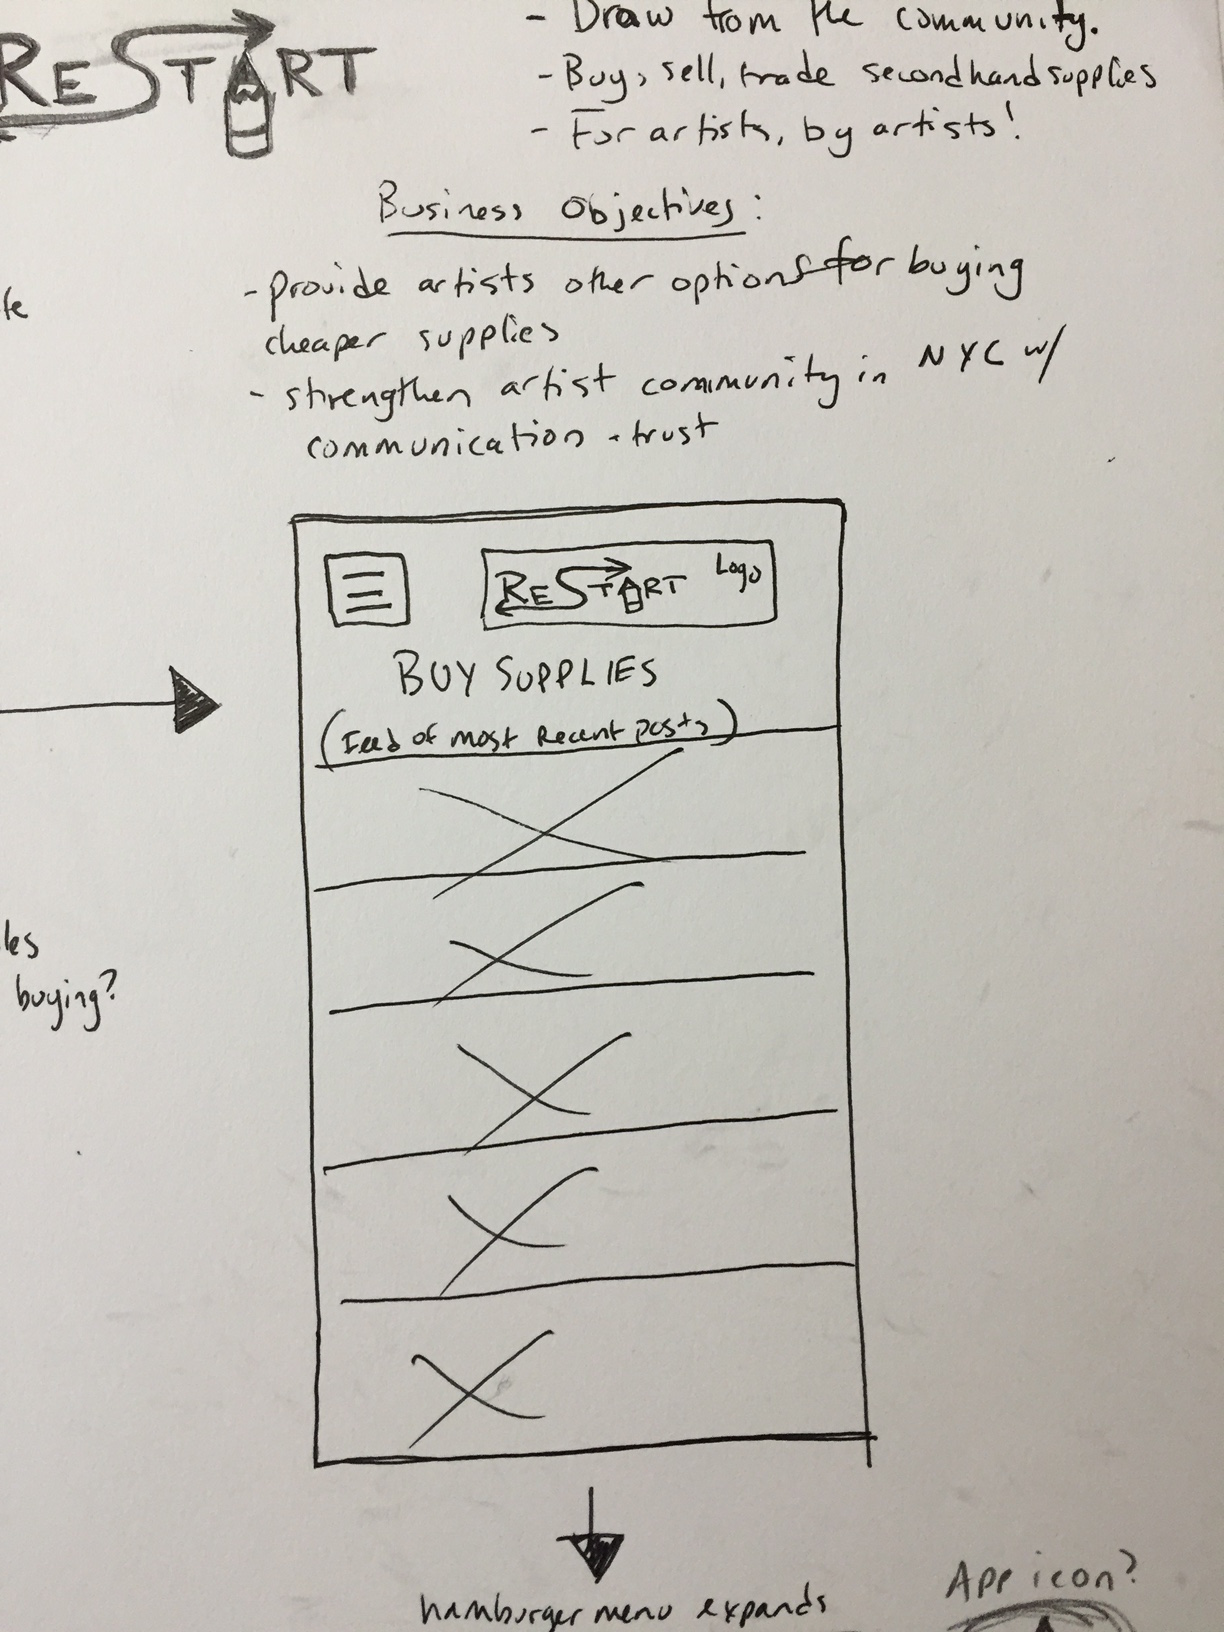 - Draw from the community.
ReStART
- Buy, sell, trade secondhand supplies
- For artists, by artists!
Business Objectives:
- provide artists other options for buying
cheaper supplies
- strengthen artist community in NYC w/
communication + trust
ReStART Logo
BUY SUPPLIES
(Feed of most Recent posts)
buying?
hamburger menu expands
App icon?